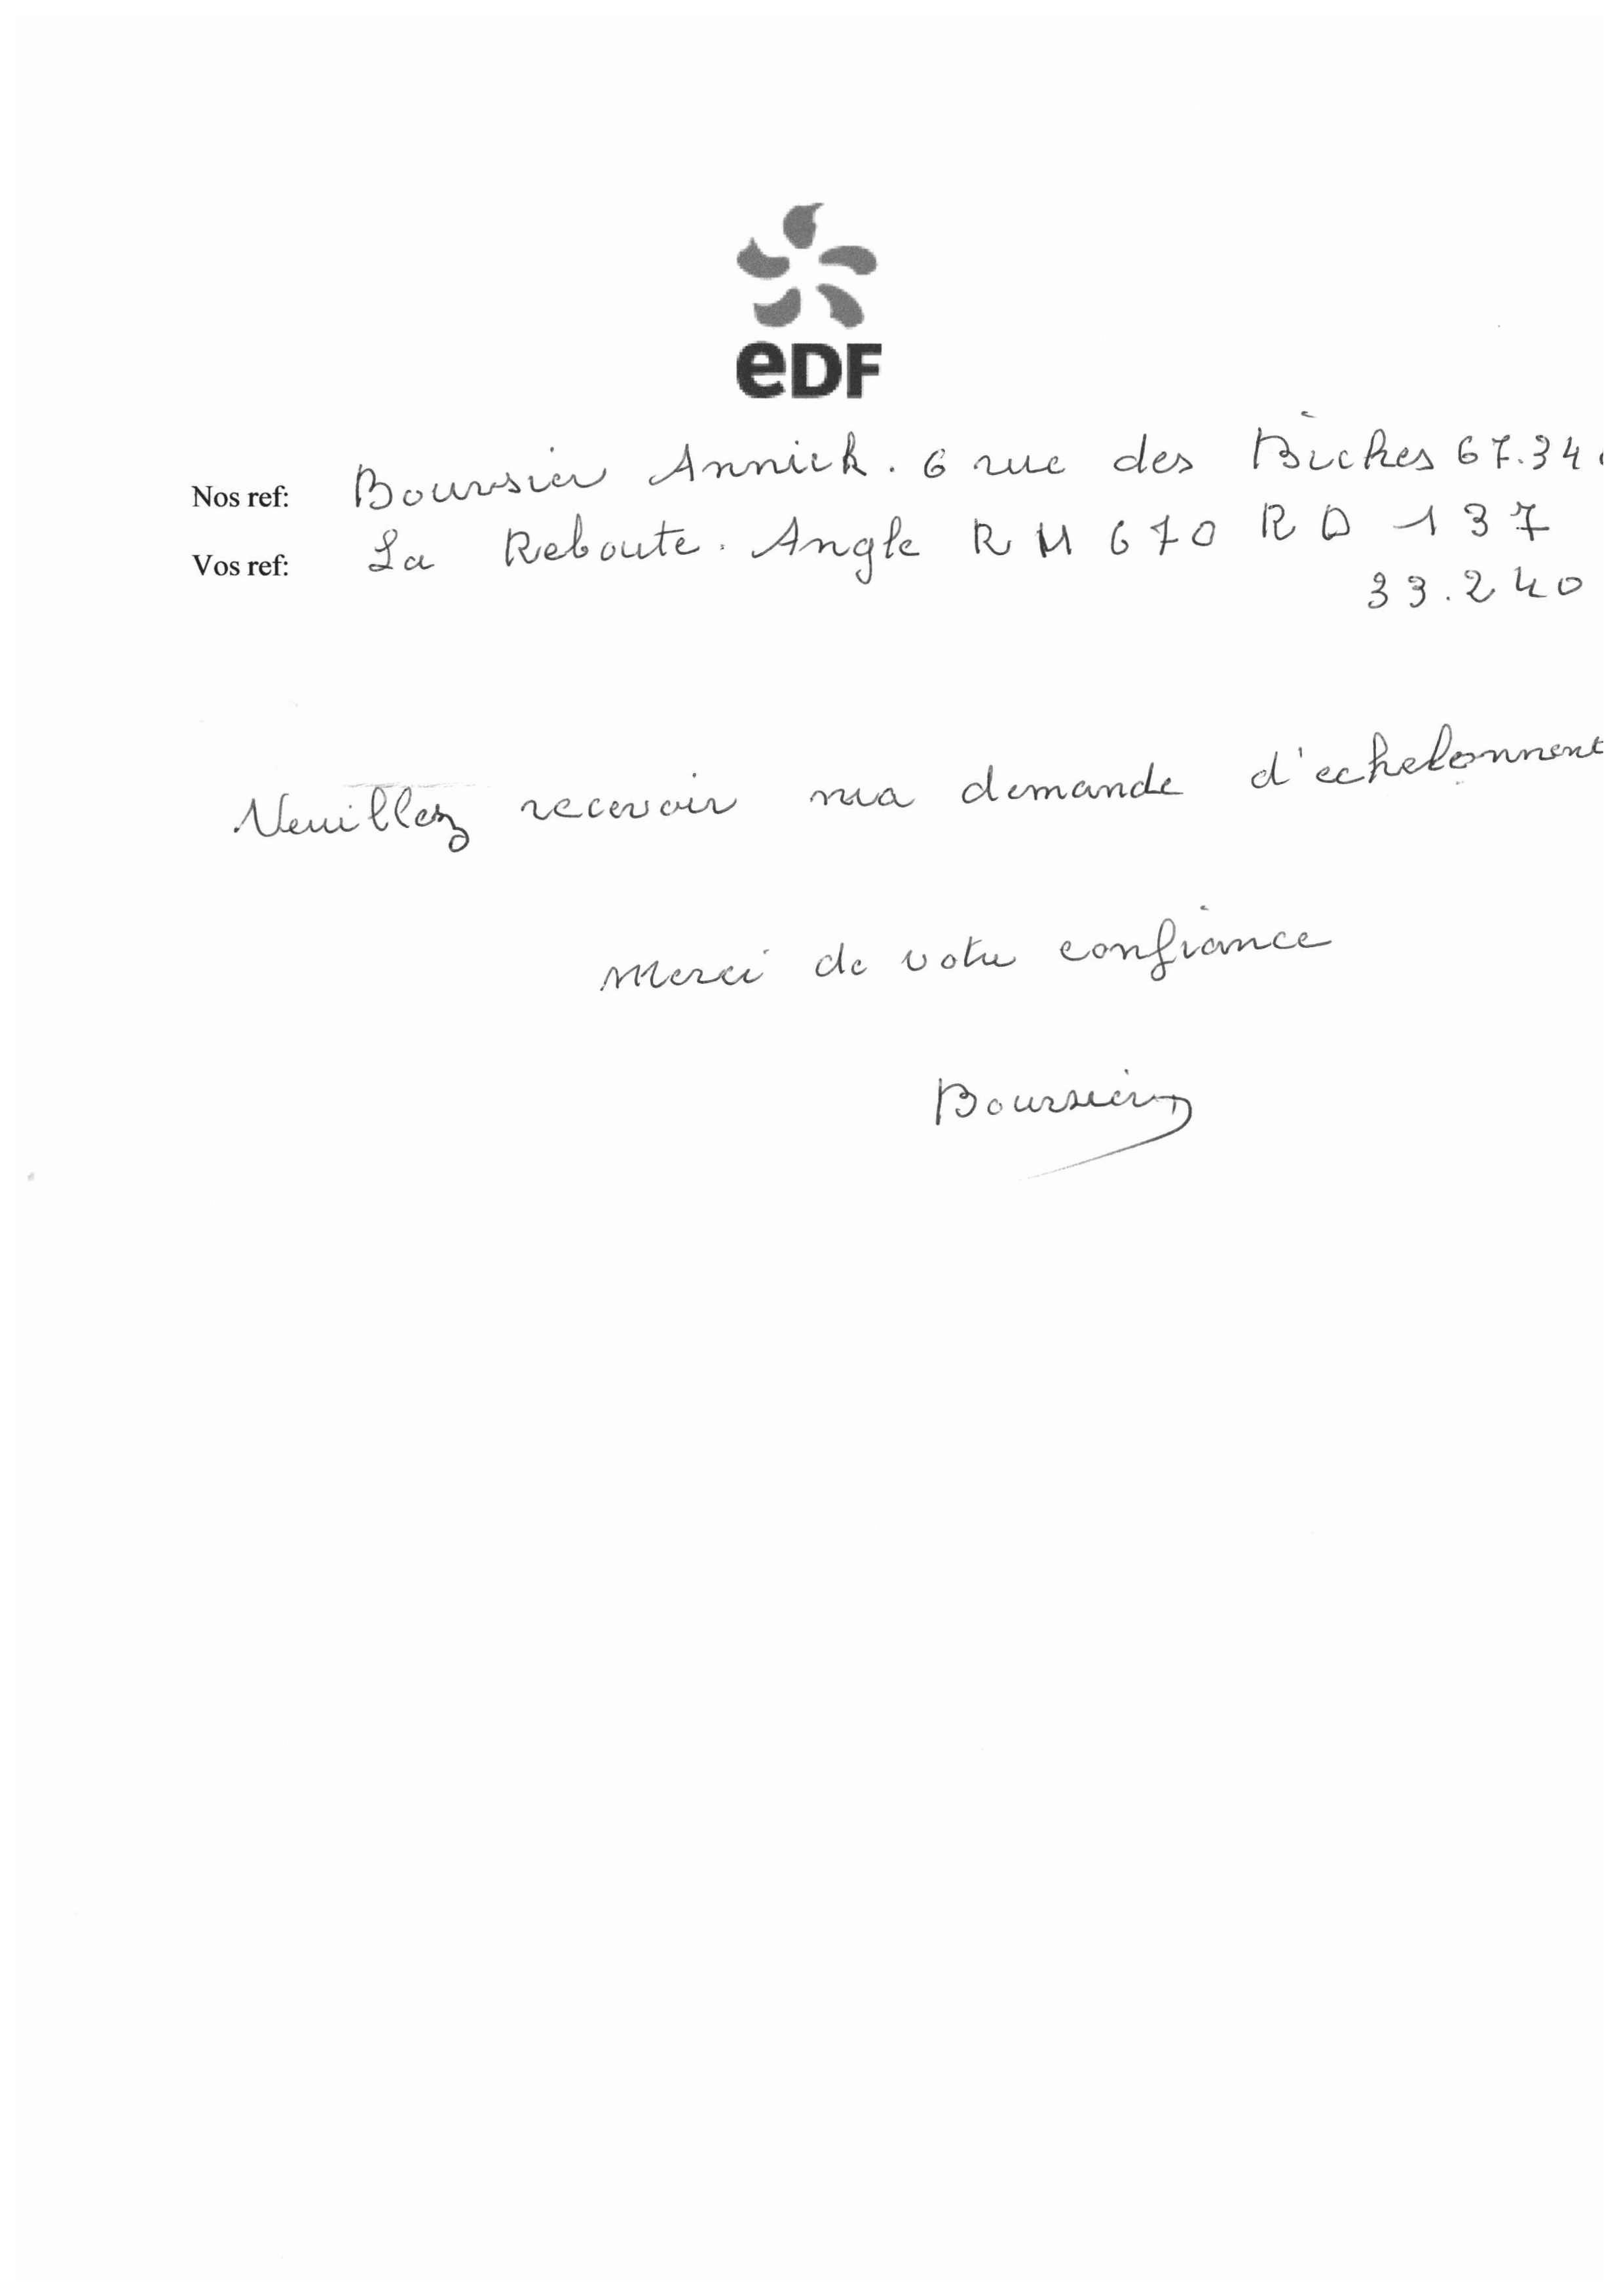 eDF
Nos ref: Boursier Annick. 6 rue des Biches 67.34
Vos ref: La Reboute. Angle R M 670 R D 137
33.240
Veuillez recevoir ma demande d'echelonnent
Merci de votre confiance
Boursier